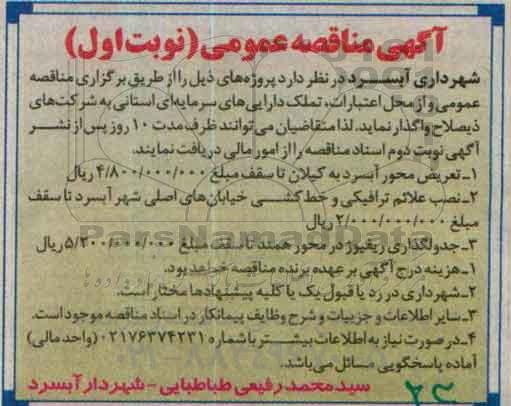 آگهی مناقصه عمومی (نوبت اول)
شهرداری آبسرد در نظر دارد پروژه‌های ذیل را از طریق برگزاری مناقصه
عمومی و از محل اعتبارات، تملک دارایی‌های سرمایه‌ای استانی به شرکت‌های
ذیصلاح واگذار نماید. لذا متقاضیان می‌توانند ظرف مدت ۱۰ روز پس از نشر
آگهی نوبت دوم اسناد مناقصه را از امور مالی دریافت نمایند.
۱ـ تعریض محور آبسرد به کیلان تا سقف مبلغ ۴/۸۰۰/۰۰۰/۰۰۰ ریال
۲ـ نصب علائم ترافیکی و خط کشی خیابان‌های اصلی شهر آبسرد تا سقف
مبلغ ۲/۰۰۰/۰۰۰/۰۰۰ ریال
۳ـ جدولگذاری ریفیوژ در محور همند تا سقف مبلغ ۵/۲۰۰/۰۰۰/۰۰۰ ریال
۱ـ هزینه درج آگهی بر عهده برنده مناقصه خواهد بود.
۲ـ شهرداری در رد یا قبول یک یا کلیه پیشنهادها مختار است.
۳ـ سایر اطلاعات و جزییات و شرح وظایف پیمانکار در اسناد مناقصه موجود است.
۴ـ در صورت نیاز به اطلاعات بیشتر با شماره ۰۲۱۷۶۳۷۴۲۳۱ (واحد مالی)
آماده پاسخگویی مسائل می‌باشد.
سید محمد رفیعی طباطبایی - شهردار آبسرد
ParsNamadData